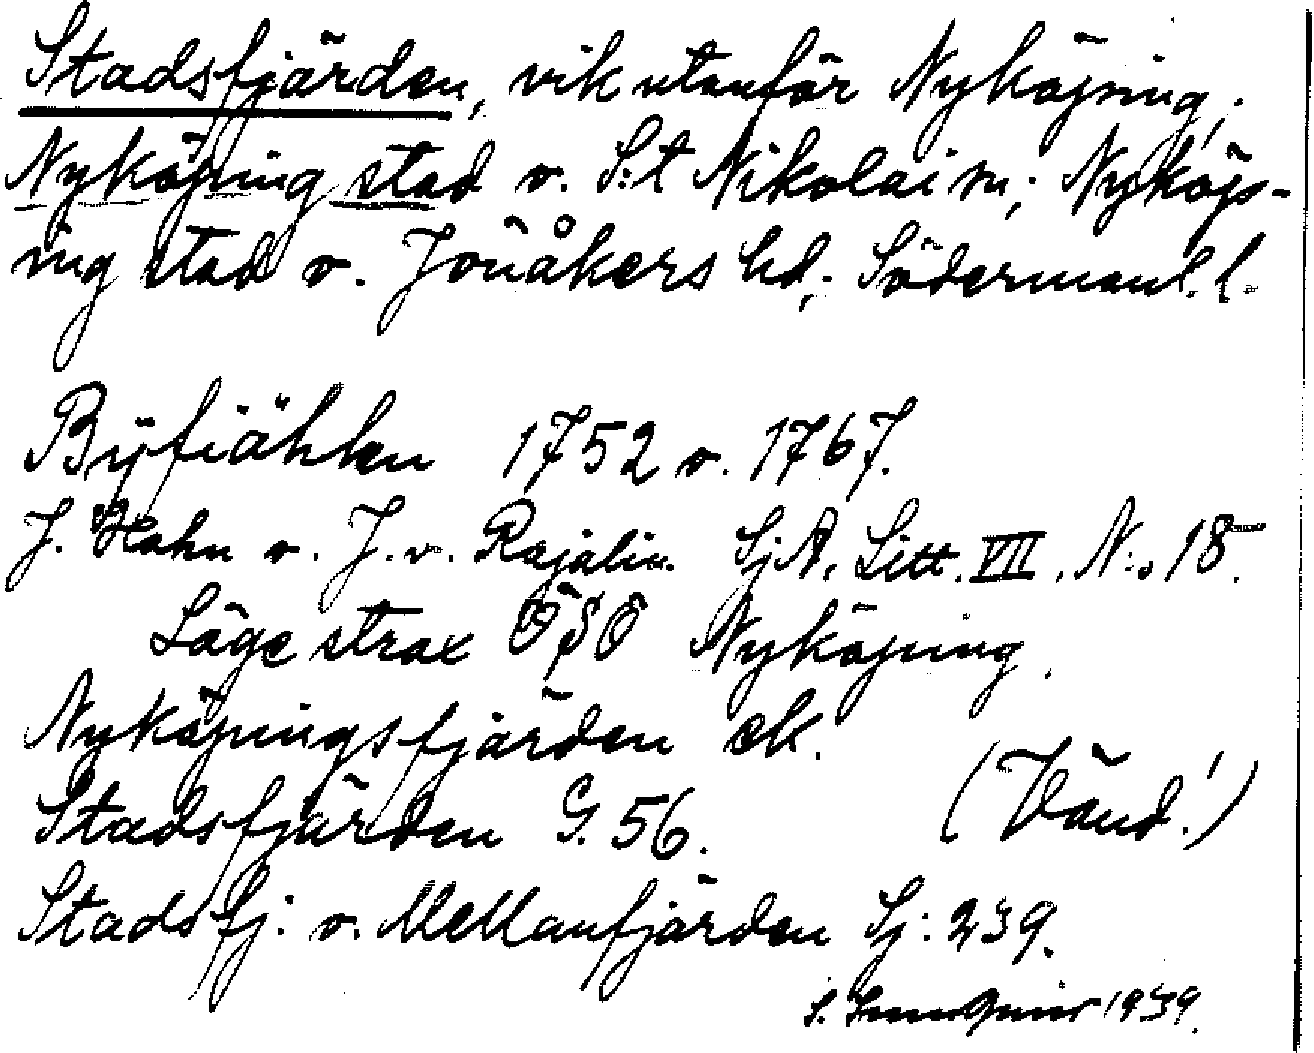 Stadsfjärden, vik utanför Nyköping;
Nyköping stad o. S:t Nikolai sn; Nyköp-
ing stad o. Jönåkers hd; Södermanl. l.
Byfiählen 1752 o. 1767.
J. Hahn o. J. v. Rajalin. SjA, Litt. VII, N:o 18.
Läge strax ÖSÖ Nyköping.
Nyköpingsfjärden ek.
Stadsfjärden G. 56.
(Vänd!)
Stadsfj: o. Mellanfjärden Sj: 239.
S. 1939.